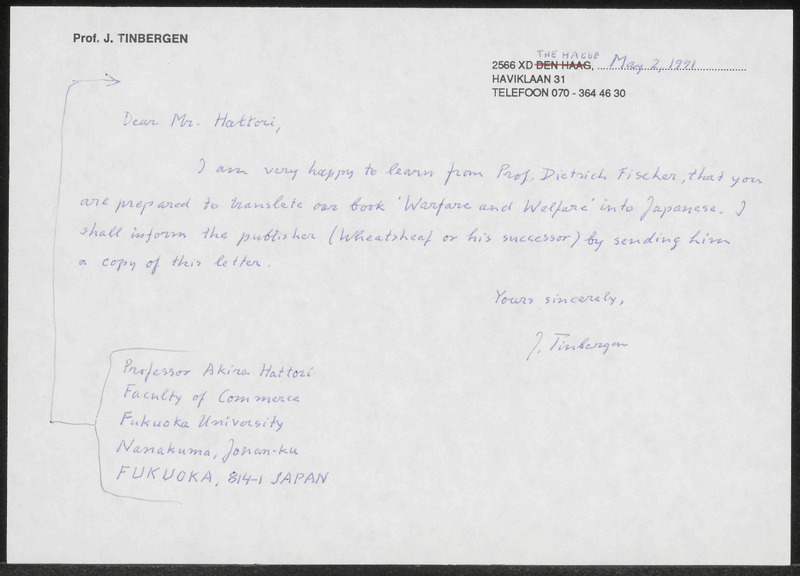 Prof. J. TINBERGEN
THE HAGUE
2566 XD DEN HAAG, May 2, 1991
HAVIKLAAN 31
TELEFOON 070 - 364 46 30
Dear Mr. Hattori,
I am very happy to learn from Prof. Dietrich Fischer, that you
are prepared to translate our book 'Warfare and Welfare' into Japanese. I
shall inform the publisher (Wheatsheaf or his successor) by sending him
a copy of this letter.
Yours sincerely,
J. Tinbergen
Professor Akira Hattori
Faculty of Commerce
Fukuoka University
Nanakuma, Jonan-ku
FUKUOKA, 814-1 JAPAN